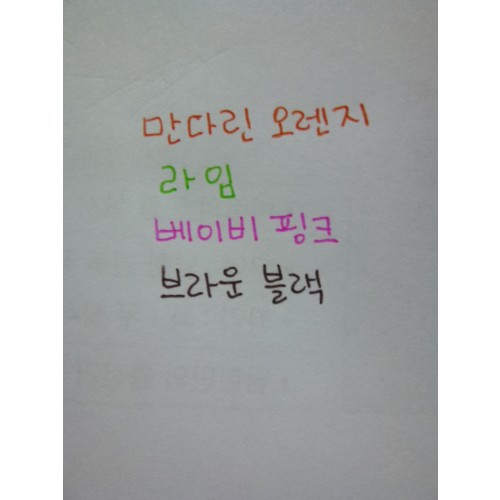 만다린 오렌지
라임
베이비 핑크
브라운 블랙